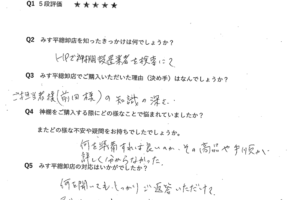 Q1 5段評価 ★★★★★
Q2 みす平棚卸店を知ったきっかけは何でしょうか？
HPで神棚設置業者を検索にて
Q3 みす平棚卸店でご購入いただいた理由（決め手）はなんでしょうか？
ご担当者様（前田様）の知識の深さ
Q4 神棚をご購入する際にどの様なことで悩まれていましたか？
またどの様な不安や疑問をお持ちでしたでしょうか。
何を準備すれば良いのか、その商品や手順が
詳しく分からなかった。
Q5 みす平棚卸店の対応はいかがでしたか？
何を聞いてもしっかりご返答いただけて